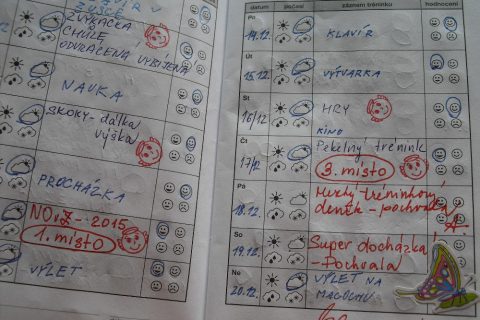 ŽVÝKAČKA
CHŮZE,
ODVRÁCENÁ, VYBÍJENÁ
NAUKA
SKOKY - dálka
výška
PROCHÁZKA
1. místo
VÝLET
datum
počasí
záznam tréninku
hodnocení
Po
14.12.
KLAVÍR
Út
15.12.
VÝTVARKA
St
16/12
HRY
KINO
Čt
17/12
Pekelný trénink
3. místo
Pá
18.12.
tréninkový
deník - pochvala
So
19.12.
Super docházka
- Pochvala
Ne
20.12.
VÝLET NA